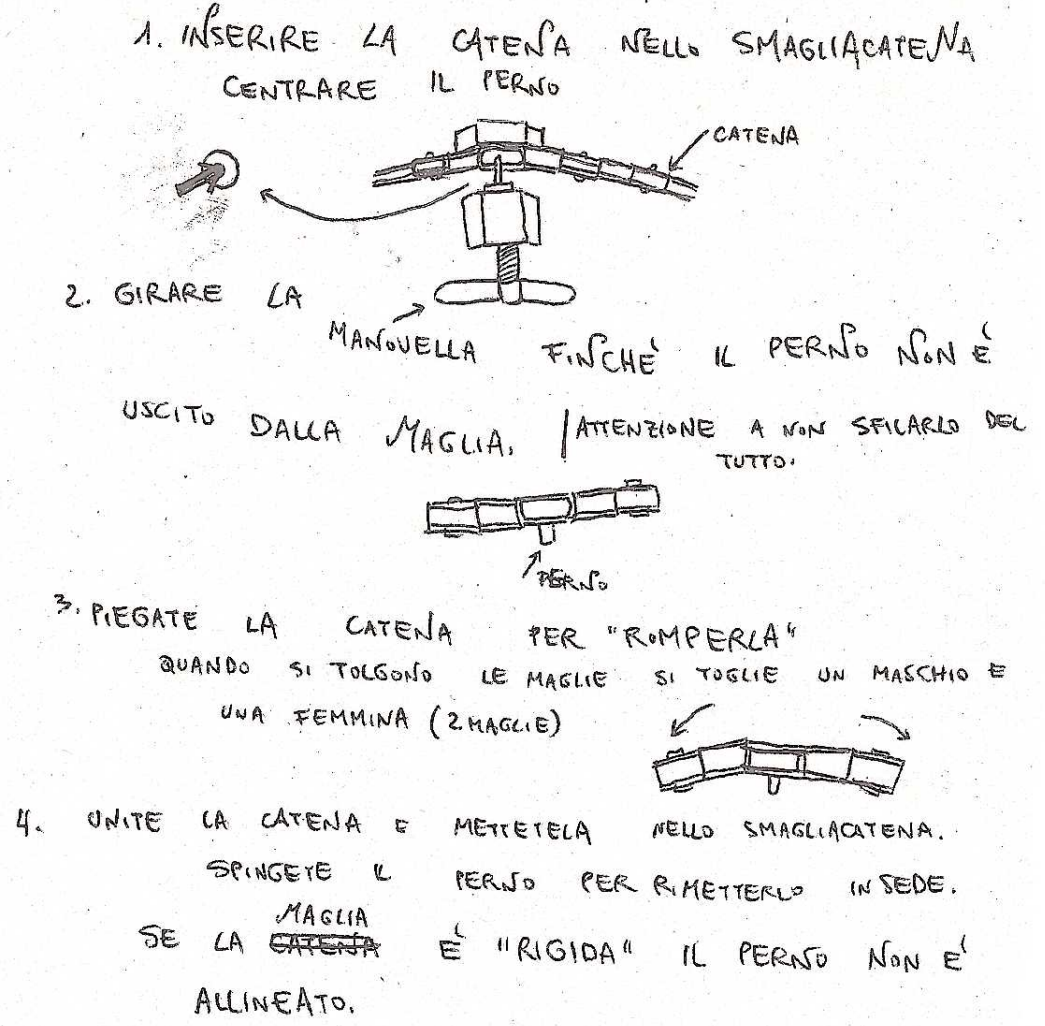 1. INSERIRE LA CATENA NELLO SMAGLIACATENA
CENTRARE IL PERNO
CATENA
2. GIRARE LA
MANOVELLA FINCHÈ IL PERNO NON È
USCITO DALLA MAGLIA. / ATTENZIONE A NON SFILARLO DEL
TUTTO.
PERNO
3. PIEGATE LA CATENA PER "ROMPERLA"
QUANDO SI TOLGONO LE MAGLIE SI TOGLIE UN MASCHIO E
UNA FEMMINA (2 MAGLIE)
4. UNITE LA CATENA E METTETELA NELLO SMAGLIACATENA.
SPINGETE IL PERNO PER RIMETTERLO IN SEDE.
MAGLIA
SE LA CATENA È "RIGIDA" IL PERNO NON È
ALLINEATO.